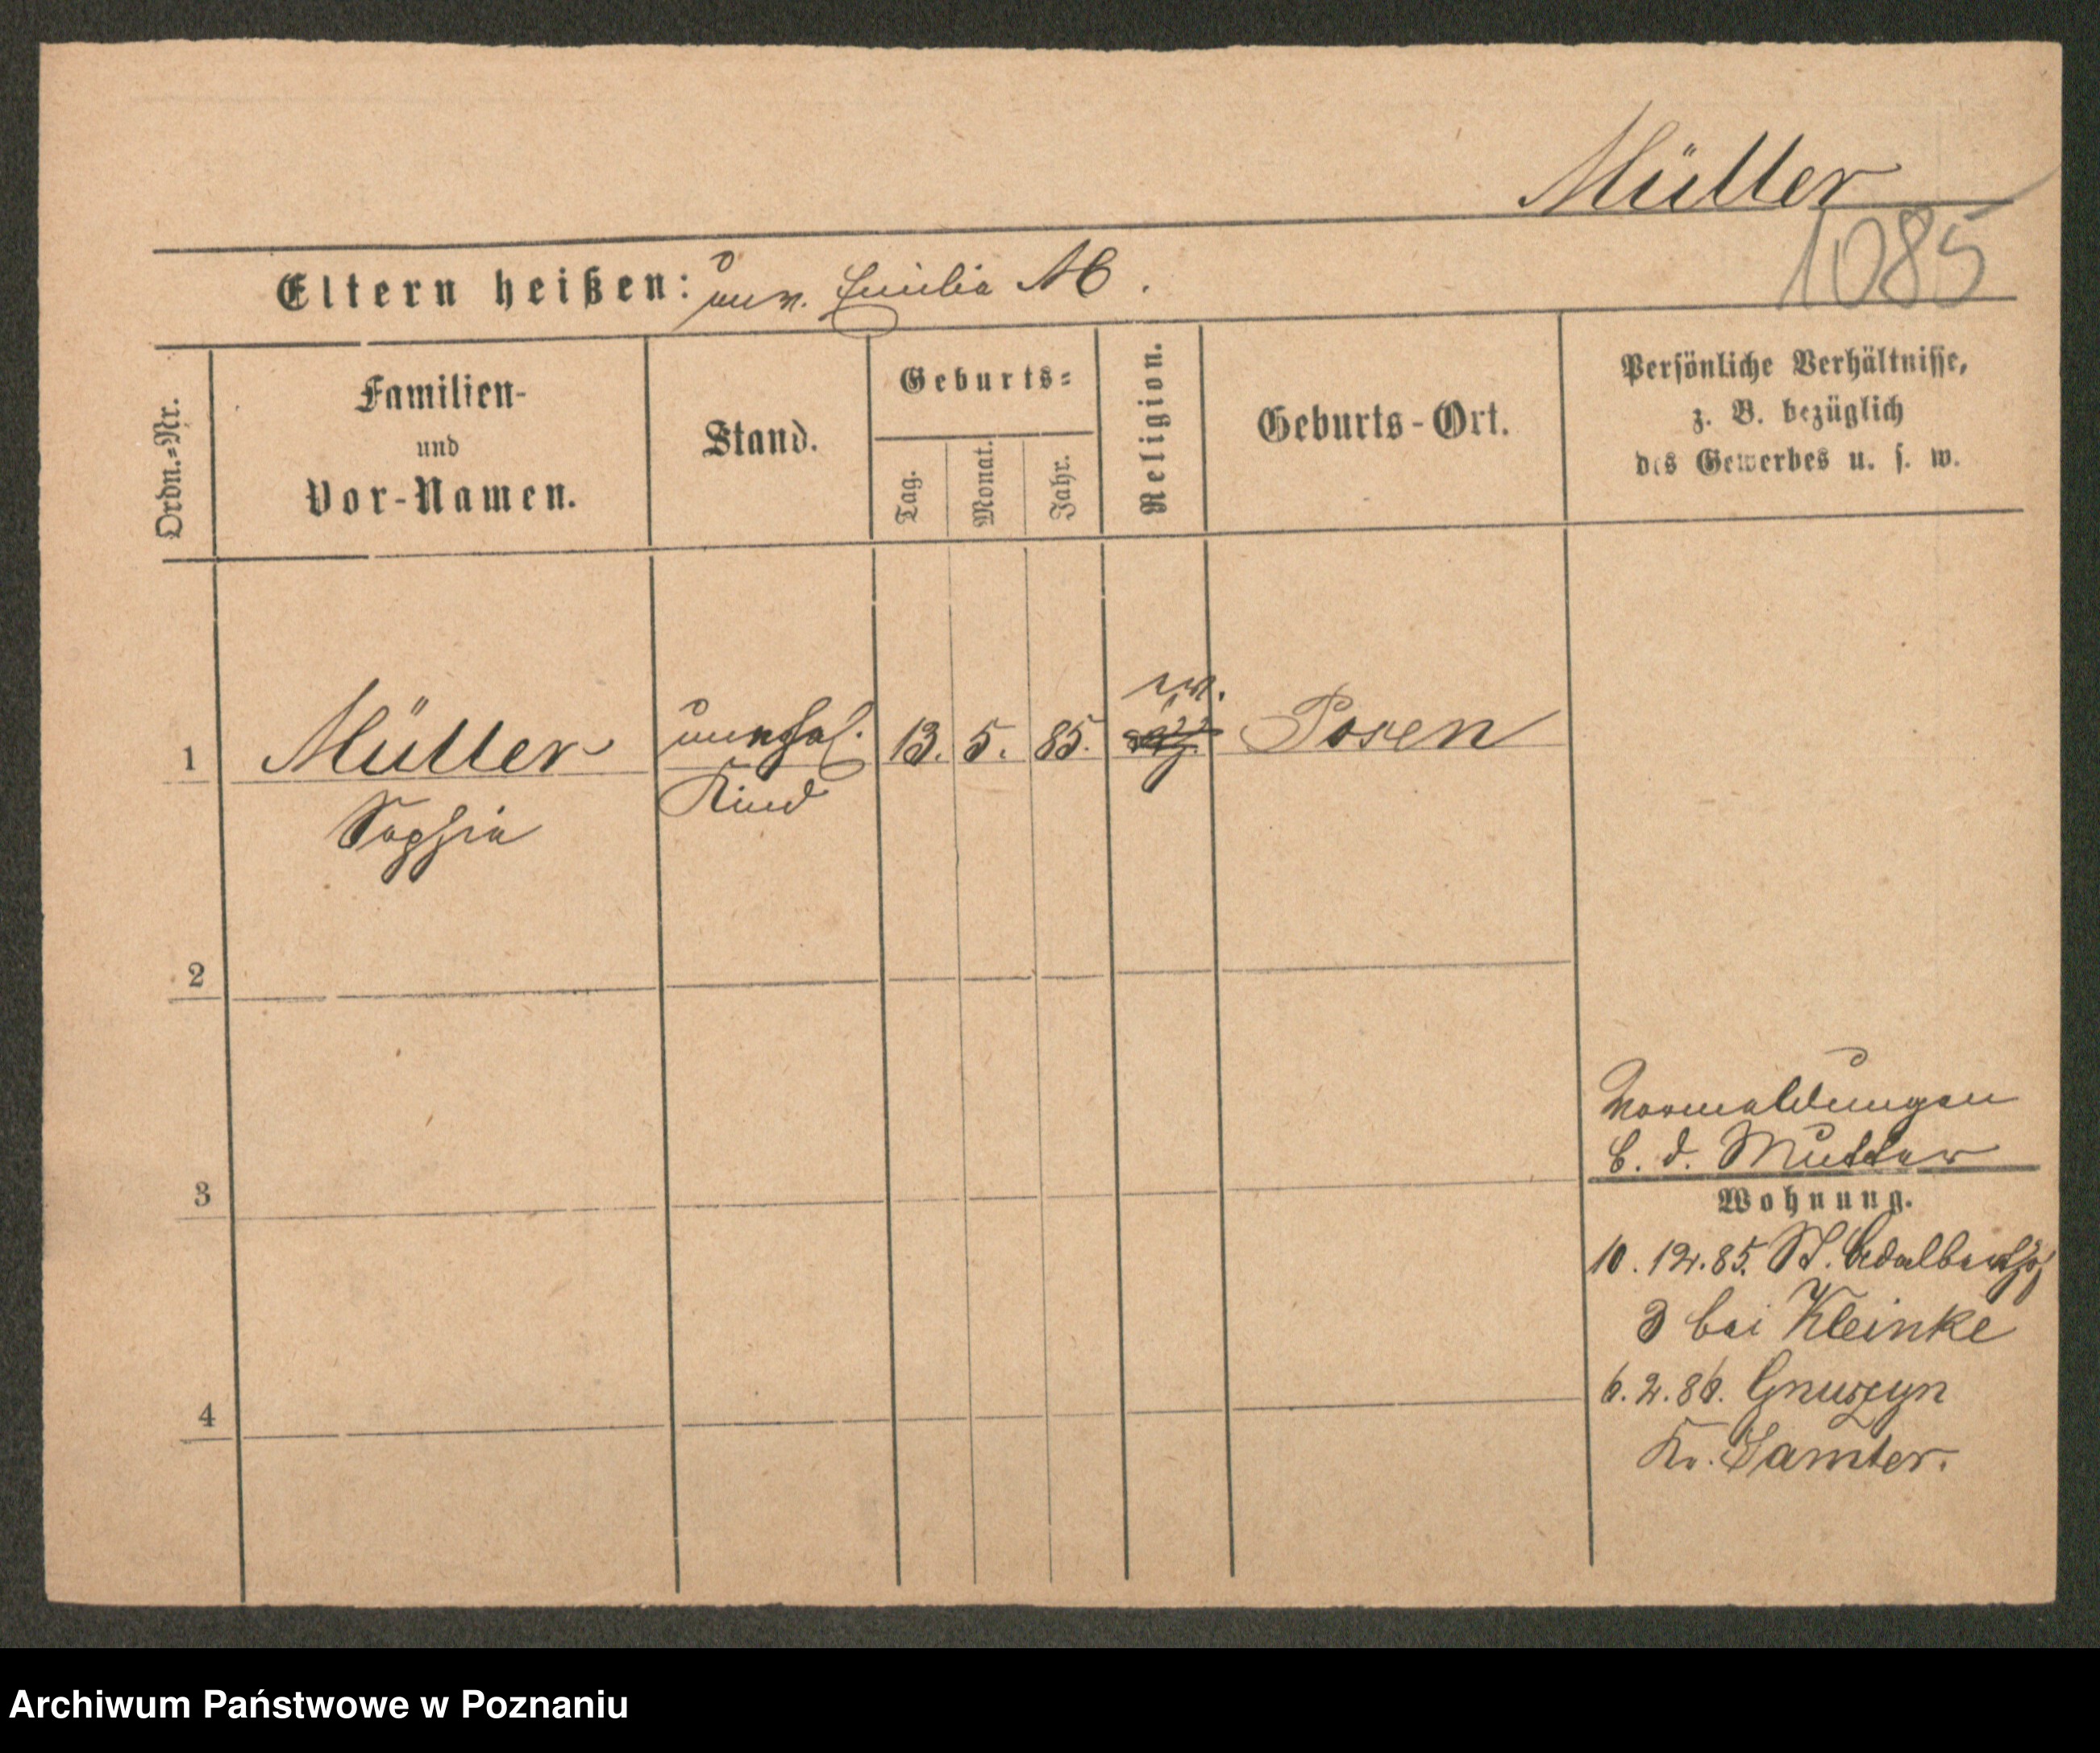 Müller
1085
Eltern heißen: unv. Emilie M.
Ordn.-Nr.
Familien-
und
Vor-Namen.
Stand.
Geburts-
Tag.
Monat.
Jahr.
Religion.
Geburts-Ort.
Persönliche Verhältnisse,
z. B. bezüglich
des Gewerbes u. s. w.
1 Müller unehel. 13. 5. 85. Posen
Sophie Kind
2
3
4
Vormeldungen
b. d. Mutter
Wohnung.
10. 12. 85. St. Adalbertstr.
3 bei Kleinke
6. 2. 86. Gnuszyn
Kr. Samter.
Archiwum Państwowe w Poznaniu